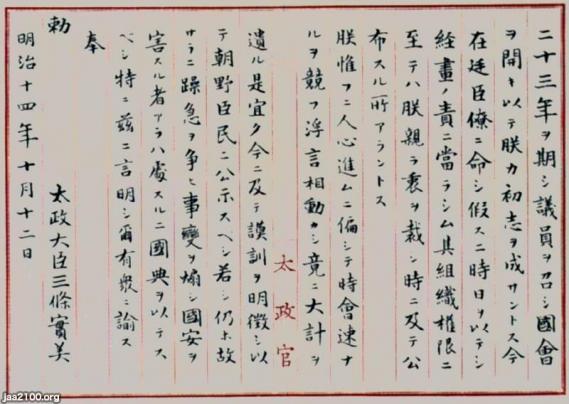 二十三年ヲ期シ議員ヲ召シ國會
ヲ開キ以テ朕カ初志ヲ成サントス今
在廷臣僚ニ命シ假スニ時日ヲ以テシ
經畫ノ責ニ當ラシム其組織權限ニ
至テハ朕親ラ衷ヲ裁シ時ニ及テ公
布スル所アラントス
朕惟フニ人心進ムニ偏シテ時會速ナ
ルヲ競フ浮言相動カシ竟ニ大計ヲ
太政官
遺ル是宜ク今ニ及テ謨訓ヲ明徴シ以
テ朝野臣民ニ公示スベシ若シ仍ホ故
サラニ躁急ヲ争ヒ事變ヲ煽シ國安ヲ
害スル者アラハ處スルニ國典ヲ以テス
ベシ特ニ茲ニ言明シ爾有衆ニ諭ス
奉
勅
太政大臣三條實美
明治十四年十月十二日
jaa2100.org